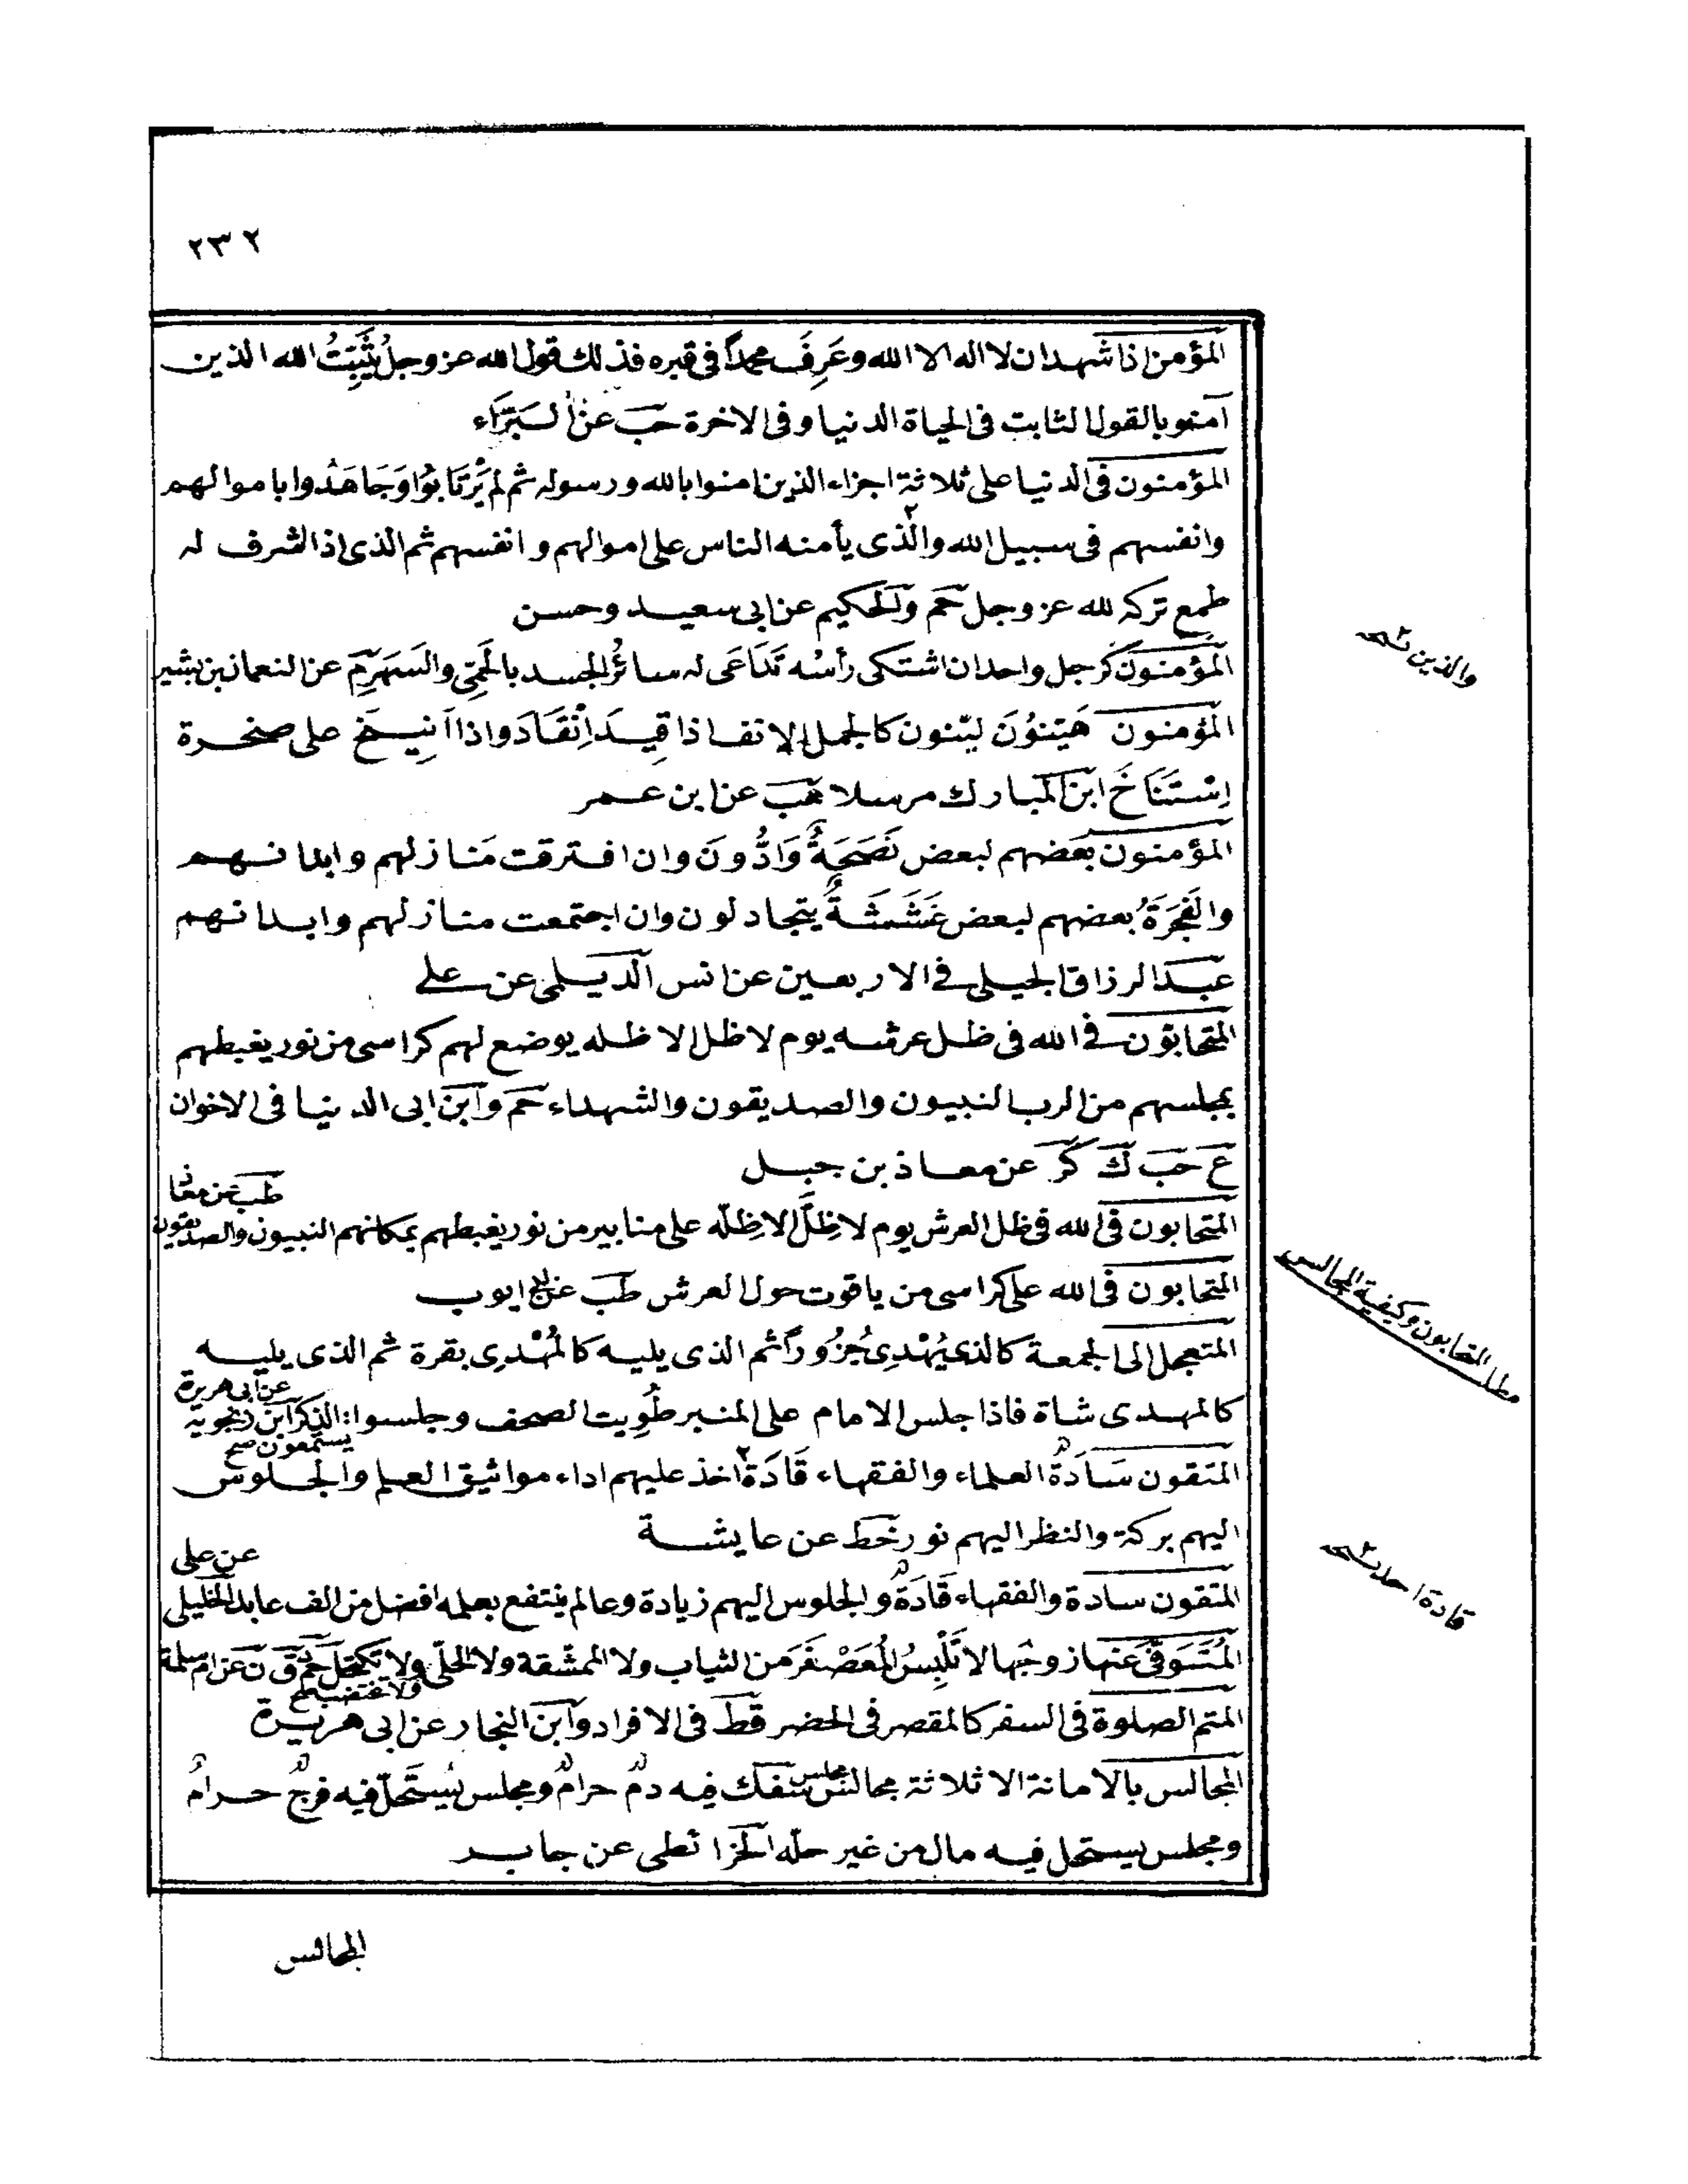 ٢٣٢
المؤمن اذا شهد ان لا اله الا الله وعَرِفَ محمداً فى قبره فذلك قول الله عز وجل يُثَبِّتُ الله الذين
آمنوا بالقول الثابت فى الحياة الدنيا وفى الاخرة حب عن البَرَاء
المؤمنون فى الدنيا على ثلاثة اجزاء الذين امنوا بالله ورسوله ثم لم يَرْتَابُوْا وَجَاهَدُوا باموالهم
وانفسهم فى سبيل الله والّذى يأمنه الناس على اموالهم وانفسهم ثم الذى اذا اشرف له
طمع تركه لله عز وجل حم والحكيم عن ابى سعيد وحسن
والذين ٢ صح
المؤمنون كرجل واحد ان اشتكى رأسُه تَدَاعَى له سائرُ الجسد بالحمّى والسَهَر م عن النعمان بن بشير
المؤمنون هَيّنوُنَ ليّنون كالجمل الانف اذا قِيدَ اِنْقَادَ واذا اُنِيخَ على صخرة
اِسْتَنَاخَ ابن المبارك مرسلا هب عن ابن عمر
المؤمنون بعضهم لبعض نَصَحَةٌ وَادُّونَ وان افترقت مَنازلهم وابدانهم
والفَجَرَةُ بعضهم لبعض غَشَشَةٌ يتجادلون وان اجتمعت منازلهم وابدانهم
عبد الرزاق الجيلى فى الاربعين عن انس الديلمى عن على
المتحابّون فى الله فى ظل عرشه يوم لا ظل الا ظله يوضع لهم كراسى من نور يغبطهم
بمجلسهم من الرب النبيون والصديقون والشهداء حم وابن ابى الدنيا فى الاخوان
ع حب ك كر عن معاذ بن جبل
طب عن معاذ
المتحابون فى الله فى ظل العرش يوم لا ظِلَّ الا ظِلّه على منابر من نور يغبطهم بمكانهم النبيون والصديقون
مطلب المتحابون وكيفية المجالس
المتحابون فى الله على كراسى من ياقوت حول العرش طب عن ابى ايوب
المتعجل الى الجمعة كالذى يُهْدِى جُزُوراً ثم الذى يليه كالمُهْدِى بقرة ثم الذى يليه
كالمهدى شاة فاذا جلس الامام على المنبر طُوِيت الصحف وجلسوا يستمعون صح الذكر ابن زنجوية عن ابى هريرة
المتقون سَادَةٌ العلماء والفقهاء قَادَةٌ ٢ اخذ عليهم اداء مواثيق العلم والجلوس
اليهم بركة والنظر اليهم نور خط عن عايشة
قادة احد ٢ صح
المتقون سادة والفقهاء قَادَةٌ والجلوس اليهم زيادة وعالم ينتفع بعلمه افضل من الف عابد الخليلى عن على
المُتَوَفَّى عَنها زوجُها لا تَلْبِسُ المُعَصْفَرَ من الثياب ولا الممشّقة ولا الحلّى ولا تختضب صح ولا تكتحل حم د ق ن عن ام سلمة
المتم الصلوة فى السفر كالمقصر فى الحضر قط فى الافراد وابن النجار عن ابى هريرة
المجالس بالامانة الا ثلاثة مجالس مجلس سُفك فيه دمٌ حرامٌ ومجلس يُستَحلّ فيه فرجٌ حرامٌ
ومجلس يستحل فيه مال من غير حلّه الخرائطى عن جابر
المجالس